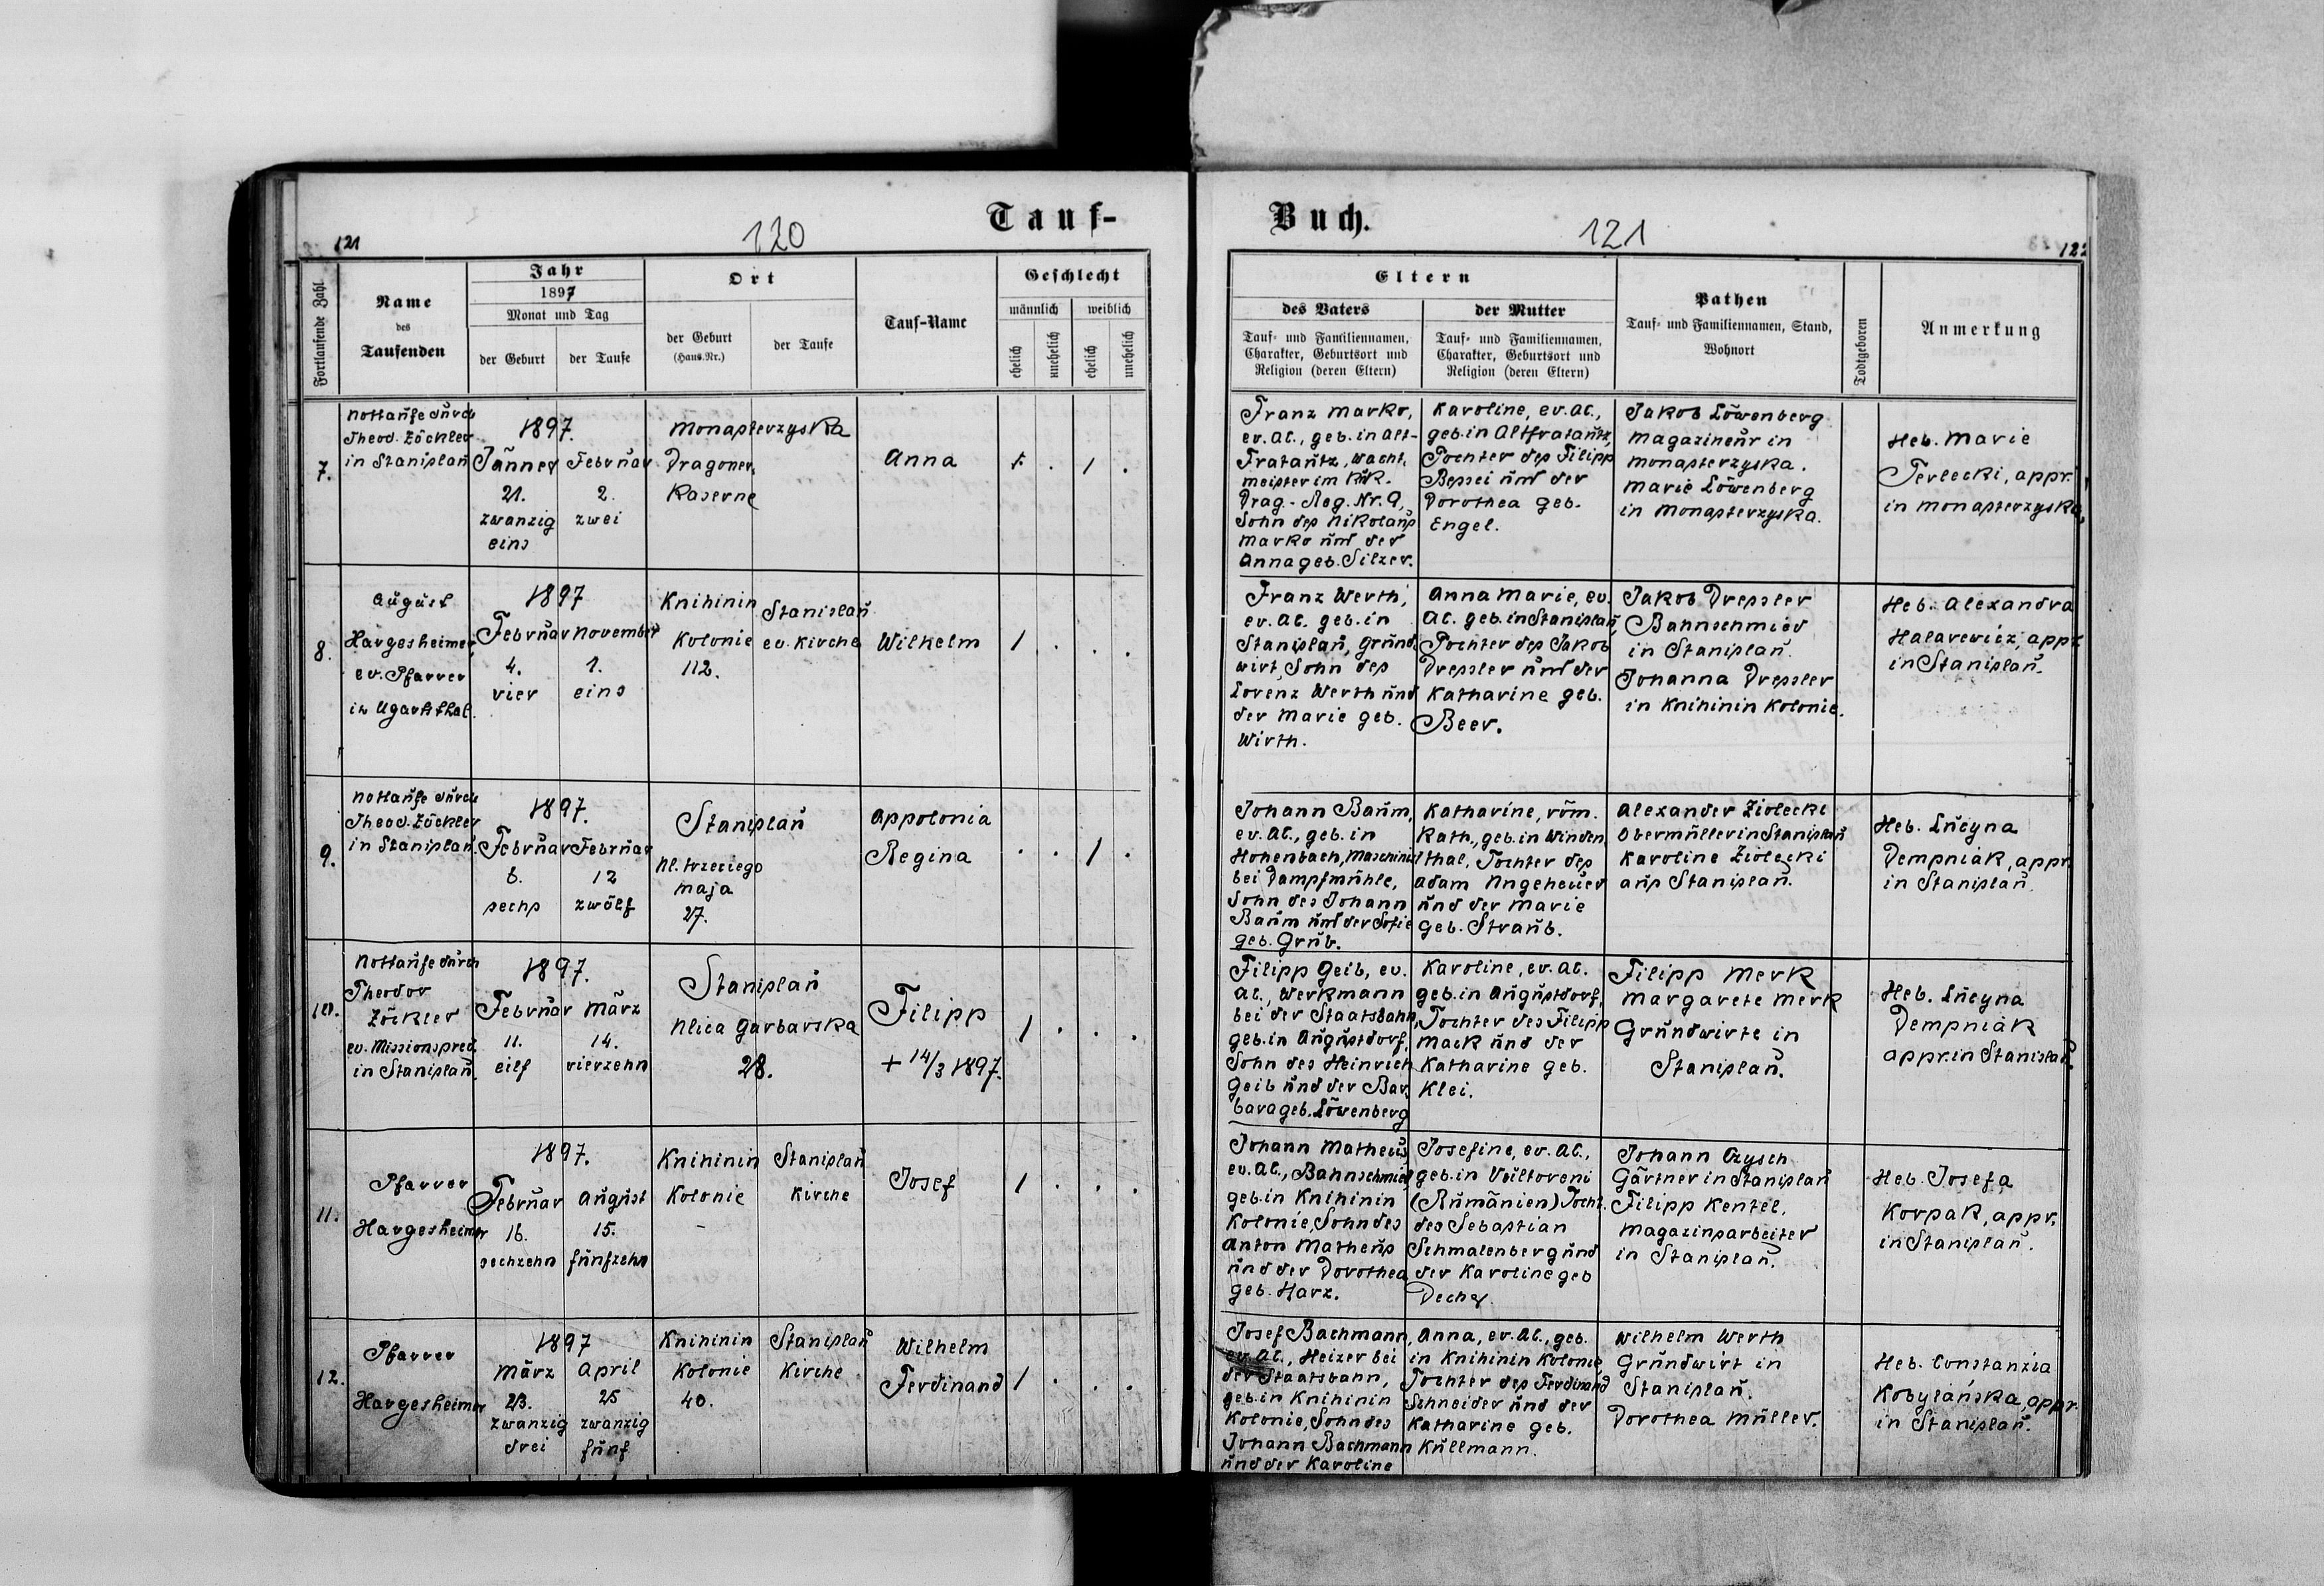 Tauf-
Buch.
120
121
121
122
Fortlaufende Zahl.
Name
des
Taufenden
Jahr
1897
Monat und Tag
der Geburt
der Taufe
Ort
der Geburt
(Haus-Nr.)
der Taufe
Tauf-Name
Geschlecht
männlich
weiblich
ehelich
unehelich
ehelich
unehelich
Eltern
des Vaters
Tauf- und Familiennamen,
Charakter, Geburtsort und
Religion (deren Eltern)
der Mutter
Tauf- und Familiennamen,
Charakter, Geburtsort und
Religion (deren Eltern)
Pathen
Tauf- und Familiennamen, Stand,
Wohnort
Todtgeboren
Anmerkung
7.
Nottaufe durch
Theod. Zöckler
in Stanislau
1897.
Jänner
21.
zwanzig
eins
Februar
2.
zwei
Monasterzyska
Dragoner
Kaserne
Anna
1
Franz Marko,
ev. AC., geb. in Alt-
Fratautz, Wacht-
meister im k.u.k.
Drag.-Reg. Nr. 9,
Sohn des Nikolaus
Marko und der
Anna geb. Silzer.
Karoline, ev. AC.,
geb. in Altfratautz,
Tochter des Filipp
Bessei und der
Dorothea geb.
Engel.
Jakob Löwenberg
Magazineur in
Monasterzyska.
Marie Löwenberg
in Monasterzyska.
Heb. Marie
Terlecki, appr.
in Monasterzyska.
8.
August
Hargesheimer,
ev. Pfarrer
in Ugartsthal.
1897
Februar
4.
vier
November
1.
eins
Knihinin
Kolonie
112.
Stanislau
ev. Kirche
Wilhelm
1
Franz Werth,
ev. AC. geb. in
Stanislau, Grund-
wirt, Sohn des
Lorenz Werth und
der Marie geb.
Wirth.
Anna Marie, ev.
AC. geb. in Stanislau,
Tochter des Jakob
Dressler und der
Katharine geb.
Beer.
Jakob Dressler
Bahnschmied
in Stanislau.
Johanna Dressler
in Knihinin Kolonie.
Heb. Alexandra
Halarewicz, appr.
in Stanislau.
9.
Nottaufe durch
Theod. Zöckler
in Stanislau.
1897.
Februar
6.
sechs
Februar
12
zwölf
Stanislau
Ul. trzeciego
maja
27.
Appolonia
Regina
1
Johann Baum,
ev. AC., geb. in
Hohenbach, Maschinist
bei Dampfmühle,
Sohn des Johann
Baum und der Sofie
geb. Grub.
Katharine, röm.
Kath., geb. in Winden-
thal, Tochter des
Adam Ungeheuer
und der Marie
geb. Straub.
Alexander Ziolecki
Obermüller in Stanislau
Karoline Ziolecki
aus Stanislau.
Heb. Lucyna
Dempniak, appr.
in Stanislau.
10.
Nottaufe durch
Theodor
Zöckler
ev. Missionspred.
in Stanislau.
1897.
Februar
11.
eilf
März
14.
vierzehn
Stanislau
Ulica Garbarska
28.
Filipp
+ 14/3 1897.
1
Filipp Geib, ev.
AC., Werkmann
bei der Staatsbahn,
geb. in Augustdorf,
Sohn des Heinrich
Geib und der Bar-
bara geb. Löwenberg
Karoline, ev. AC.
geb. in Augustdorf,
Tochter des Filipp
Mack und der
Katharine geb.
Klei.
Filipp Merk
Margarete Merk
Grundwirte in
Stanislau.
Heb. Lucyna
Dempniak
appr. in Stanislau.
11.
Pfarrer
Hargesheimer
1897.
Februar
16.
sechzehn
August
15.
fünfzehn
Knihinin
Kolonie
-
Stanislau
Kirche
Josef
1
Johann Matheus,
ev. AC., Bahnschmied,
geb. in Knihinin
Kolonie, Sohn des
Anton Matheus
und der Dorothea
geb. Harz.
Josefine, ev. AC.,
geb. in Vultoreni
(Rumänien) Tocht.
des Sebastian
Schmalenberg und
der Karoline geb
Decher.
Johann Czysch
Gärtner in Stanislau
Filipp Kentel,
Magazinsarbeiter
in Stanislau.
Heb. Josefa
Korpak, appr.
in Stanislau.
12.
Pfarrer
Hargesheimer
1897
März
23.
zwanzig
drei
April
25
zwanzig
fünf
Knihinin
Kolonie
40.
Stanislau
Kirche
Wilhelm
Ferdinand
1
Josef Bachmann,
ev. AC., Heizer bei
der Staatsbahn,
geb. in Knihinin
Kolonie, Sohn des
Johann Bachmann
und der Karoline
Anna, ev. AC., geb.
in Knihinin Kolonie,
Tochter des Ferdinand
Schneider und der
Katharine geb.
Kullmann.
Wilhelm Werth
Grundwirt in
Stanislau.
Dorothea Müller.
Heb. Constanzia
Kobylańska, appr.
in Stanislau.